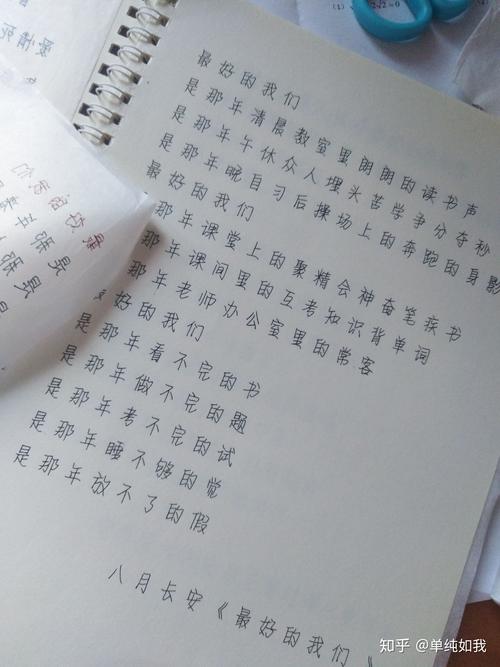 最好的我们
是那年清晨教室里朗朗的读书声
是那年午休众人埋头苦学争分夺秒
是那年晚自习后操场上的奔跑的身影
最好的我们
那年课堂上的聚精会神奋笔疾书
那年课间里的互考知识背单词
那年老师办公室里的常客
好的我们
是那年看不完的书
是那年做不完的题
是那年考不完的试
是那年睡不够的觉
是那年放不了的假
八月长安《最好的我们》
知乎 @单纯如我